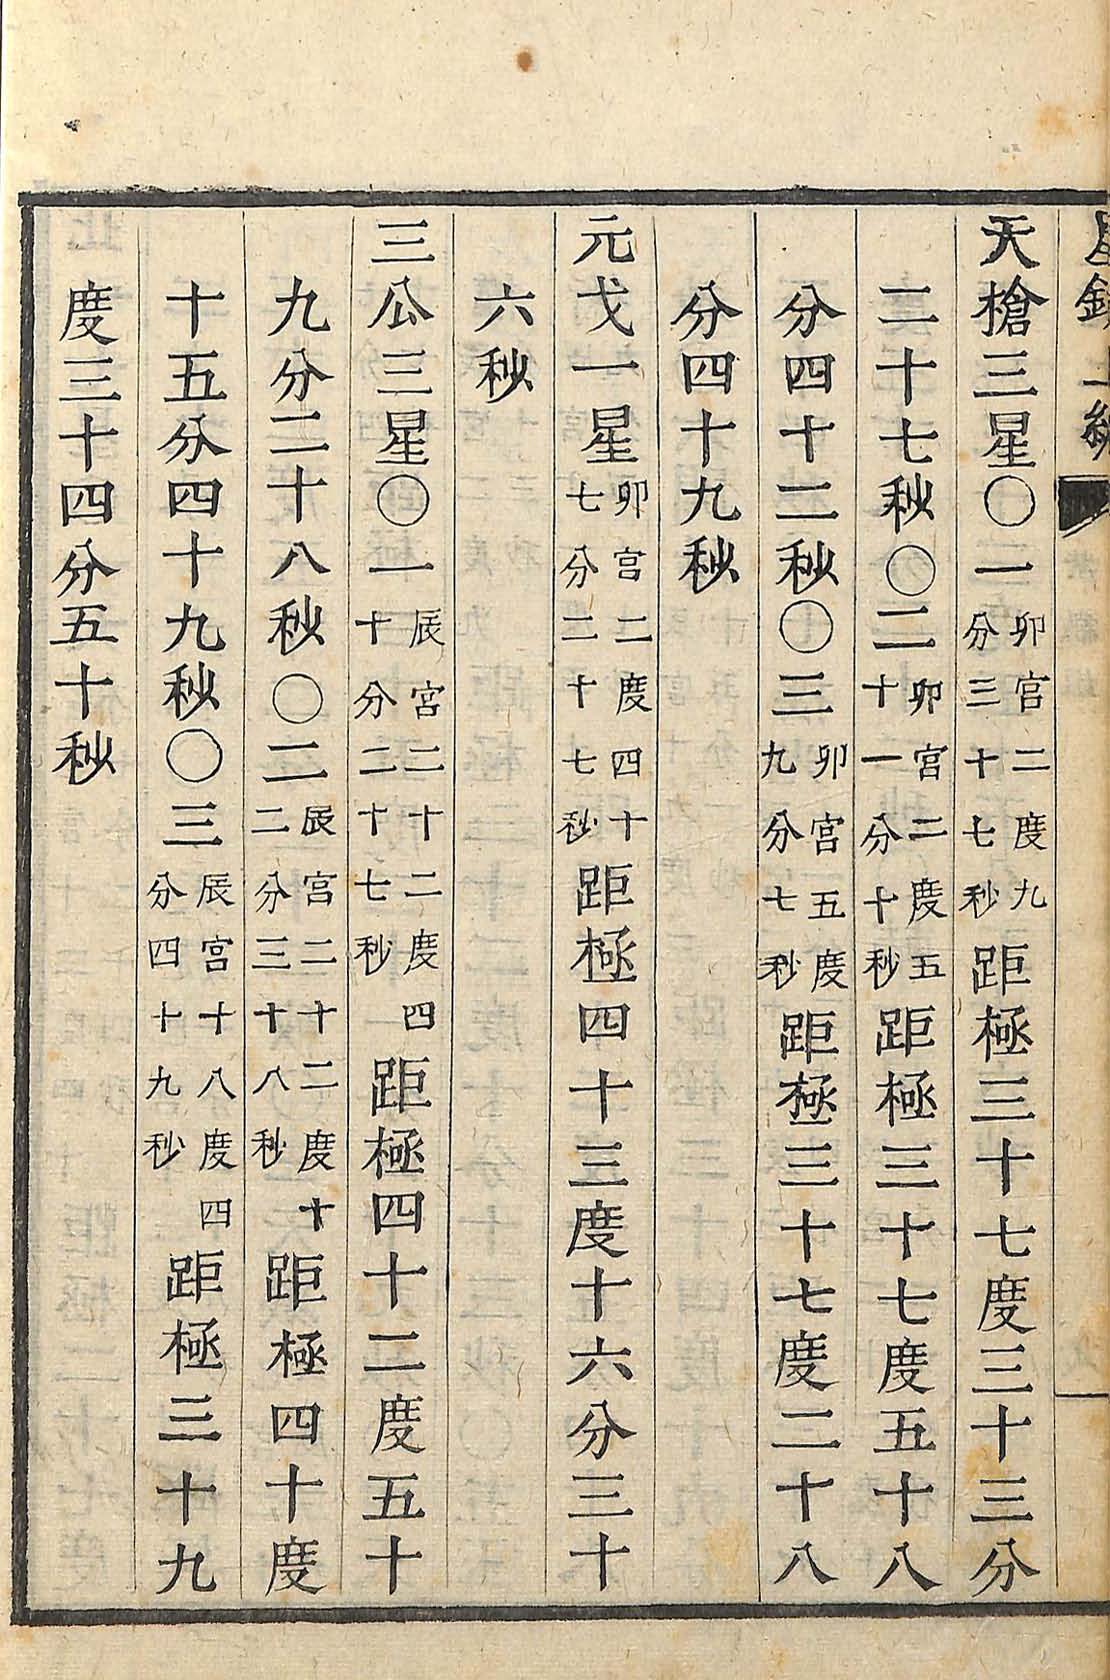 天槍三星〇一卯宮二度九分三十七秒距極三十七度三十三分
二十七秒〇二卯宮二度五十一分十秒距極三十七度五十八
分四十二秒〇三卯宮五度九分七秒距極三十七度二十八
分四十九秒
元戈一星卯宮二度四十七分二十七秒距極四十三度十六分三十
六秒
三公三星〇一辰宮二十二度四十分二十七秒距極四十二度五十
九分二十八秒〇二辰宮二十二度十二分三十八秒距極四十度
十五分四十九秒〇三辰宮十八度四分四十九秒距極三十九
度三十四分五十秒